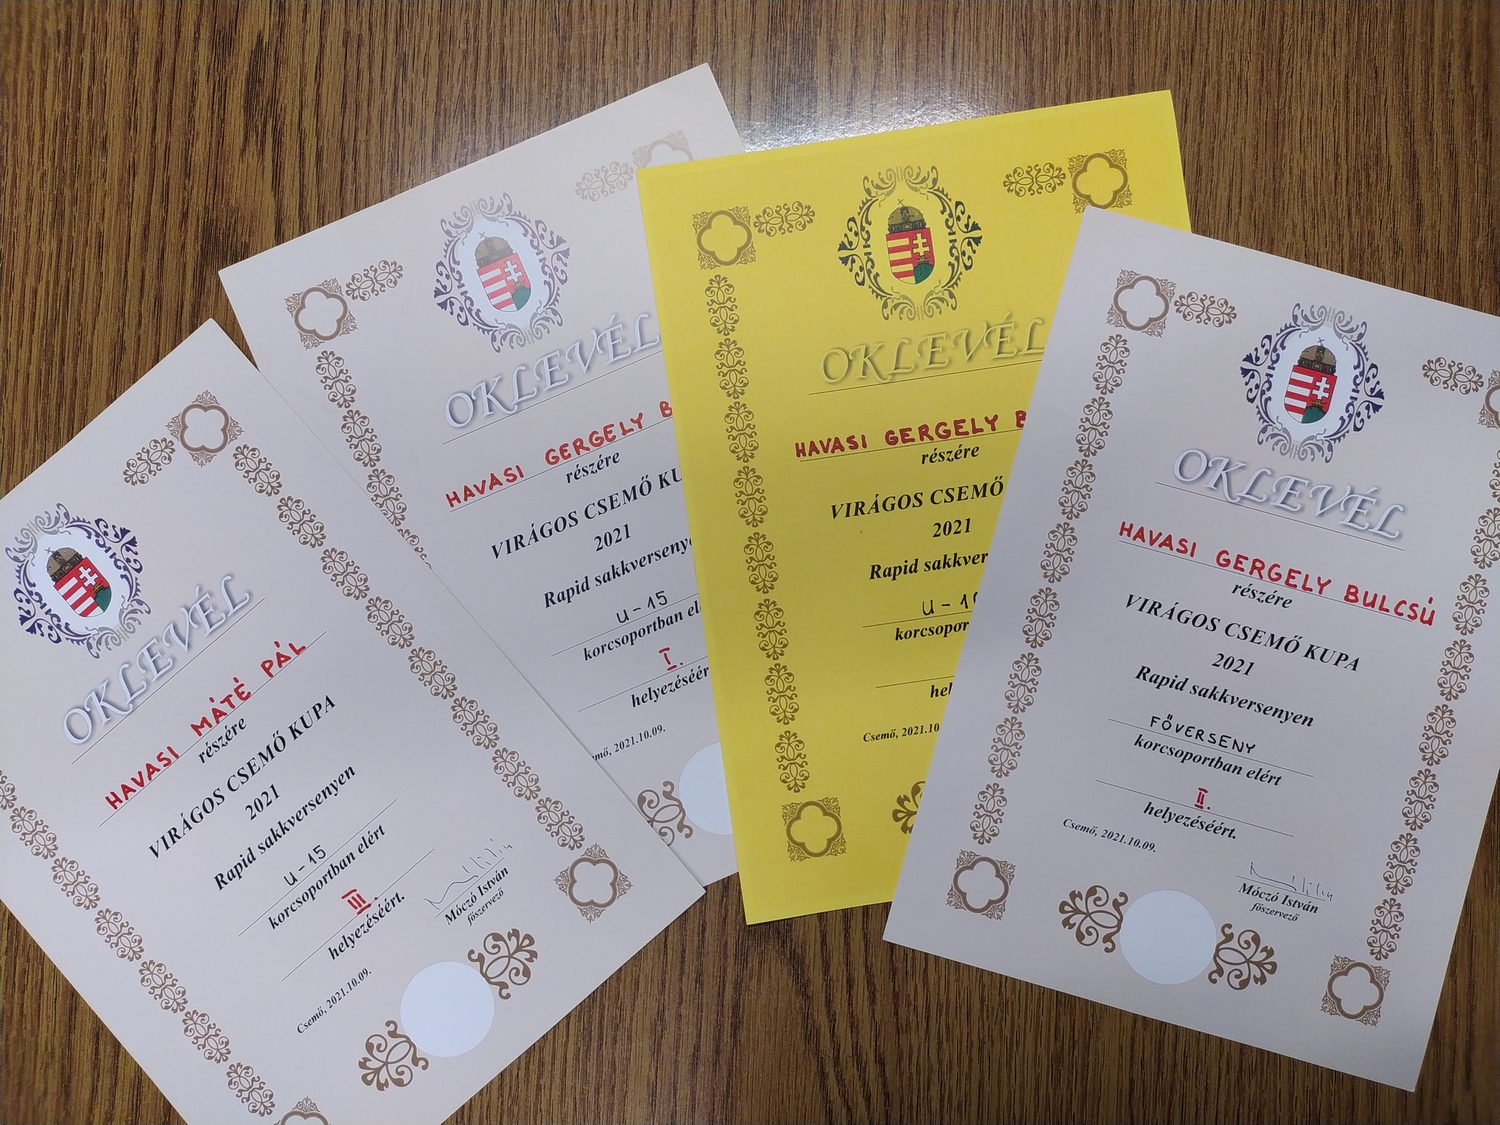 OKLEVÉL
HAVASI MÁTÉ PÁL
részére
VIRÁGOS CSEMŐ KUPA
2021
Rapid sakkversenyen
U-15
korcsoportban elért
III.
helyezéséért.
Csemő, 2021.10.09.
Móczó István
főszervező
OKLEVÉL
HAVASI GERGELY
részére
VIRÁGOS CSEMŐ
2021
Rapid
U-15
korcsoportban
I.
2021.10.09.
OKLEVÉL
HAVASI GERGELY
részére
VIRÁGOS CSEMŐ
2021
Rapid
Csemő,
OKLEVÉL
HAVASI GERGELY BULCSÚ
részére
VIRÁGOS CSEMŐ KUPA
2021
Rapid sakkversenyen
FŐVERSENY
korcsoportban elért
II.
helyezéséért.
Csemő, 2021.10.09.
Móczó István
főszervező